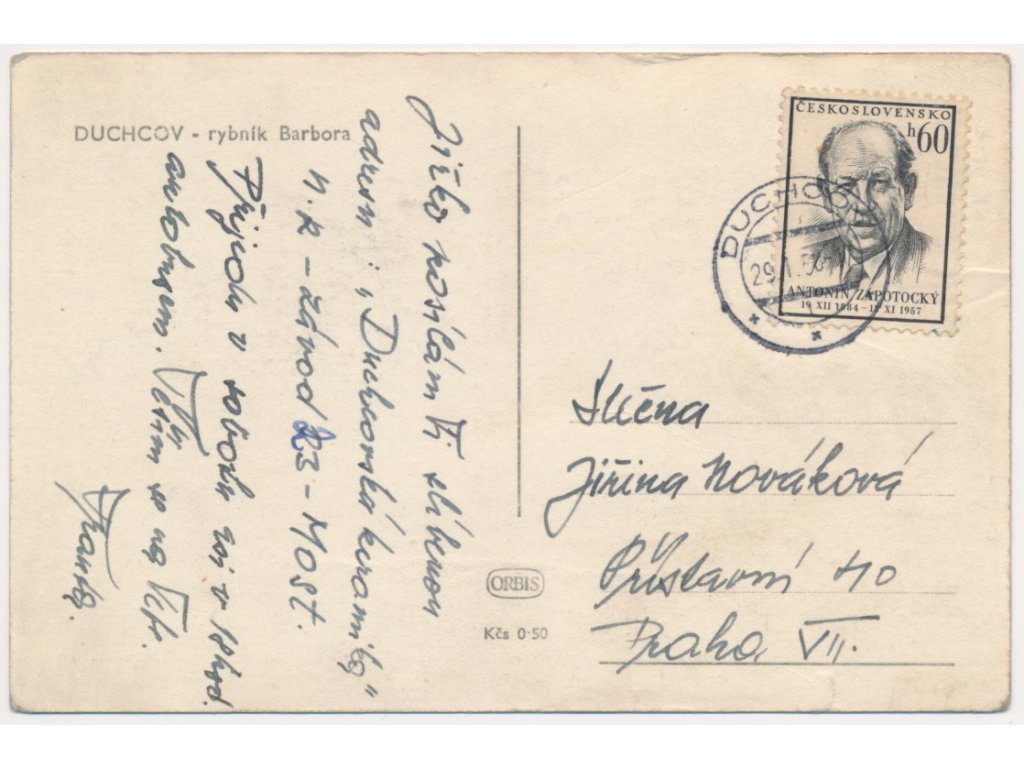 DUCHCOV - rybník Barbora
Jiřko posílám Ti slíbenou
adresu: „Duchcovská keramika"
n.p. - závod 23 - Most.
Přijedu v sobotu asi v 18 hod.
autobusem. Těším se na Tebe.
ORBIS
Kčs 0·50
ČESKOSLOVENSKO
h60
ANTONÍN ZÁPOTOCKÝ
19 XII 1884 - 13 XI 1957
DUCHCOV
Slečna
Jiřina Nováková
Přístavní 40
Praha VII.